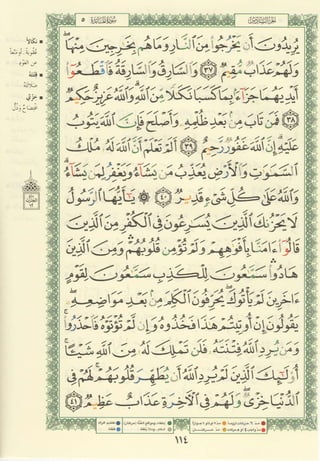 سُورَةُ المَائـِدَةِ ٥
يُرِيدُونَ أَن يَخْرُجُوا۟ مِنَ ٱلنَّارِ وَمَا هُم بِخَـٰرِجِينَ مِنْهَا ۖ
وَلَهُمْ عَذَابٌ مُّقِيمٌ ٣٧ وَٱلسَّارِقُ وَٱلسَّارِقَةُ فَٱقْطَعُوٓا۟
أَيْدِيَهُمَا جَزَآءًۢ بِمَا كَسَبَا نَكَـٰلًا مِّنَ ٱللَّهِ ۗ وَٱللَّهُ عَزِيزٌ حَكِيمٌ
٣٨ فَمَن تَابَ مِنۢ بَعْدِ ظُلْمِهِۦ وَأَصْلَحَ فَإِنَّ ٱللَّهَ يَتُوبُ
عَلَيْهِ ۗ إِنَّ ٱللَّهَ غَفُورٌ رَّحِيمٌ ٣٩ أَلَمْ تَعْلَمْ أَنَّ ٱللَّهَ لَهُۥ مُلْكُ
ٱلسَّمَـٰوَٰتِ وَٱلْأَرْضِ يُعَذِّبُ مَن يَشَآءُ وَيَغْفِرُ لِمَن يَشَآءُ ۗ
وَٱللَّهُ عَلَىٰ كُلِّ شَىْءٍ قَدِيرٌ ٤٠ يَـٰٓأَيُّهَا ٱلرَّسُولُ
لَا يَحْزُنكَ ٱلَّذِينَ يُسَـٰرِعُونَ فِى ٱلْكُفْرِ مِنَ ٱلَّذِينَ
قَالُوٓا۟ ءَامَنَّا بِأَفْوَٰهِهِمْ وَلَمْ تُؤْمِن قُلُوبُهُمْ ۛ وَمِنَ ٱلَّذِينَ
هَادُوا۟ ۛ سَمَّـٰعُونَ لِلْكَذِبِ سَمَّـٰعُونَ لِقَوْمٍ
ءَاخَرِينَ لَمْ يَأْتُوكَ ۖ يُحَرِّفُونَ ٱلْكَلِمَ مِنۢ بَعْدِ مَوَاضِعِهِۦ ۖ
يَقُولُونَ إِنْ أُوتِيتُمْ هَـٰذَا فَخُذُوهُ وَإِن لَّمْ تُؤْتَوْهُ فَٱحْذَرُوا۟ ۚ
وَمَن يُرِدِ ٱللَّهُ فِتْنَتَهُۥ فَلَن تَمْلِكَ لَهُۥ مِنَ ٱللَّهِ شَيْـًٔا ۚ
أُو۟لَـٰٓئِكَ ٱلَّذِينَ لَمْ يُرِدِ ٱللَّهُ أَن يُطَهِّرَ قُلُوبَهُمْ ۚ لَهُمْ فِى
ٱلدُّنْيَا خِزْىٌ ۖ وَلَهُمْ فِى ٱلْـَٔاخِرَةِ عَذَابٌ عَظِيمٌ ٤١
١١٤